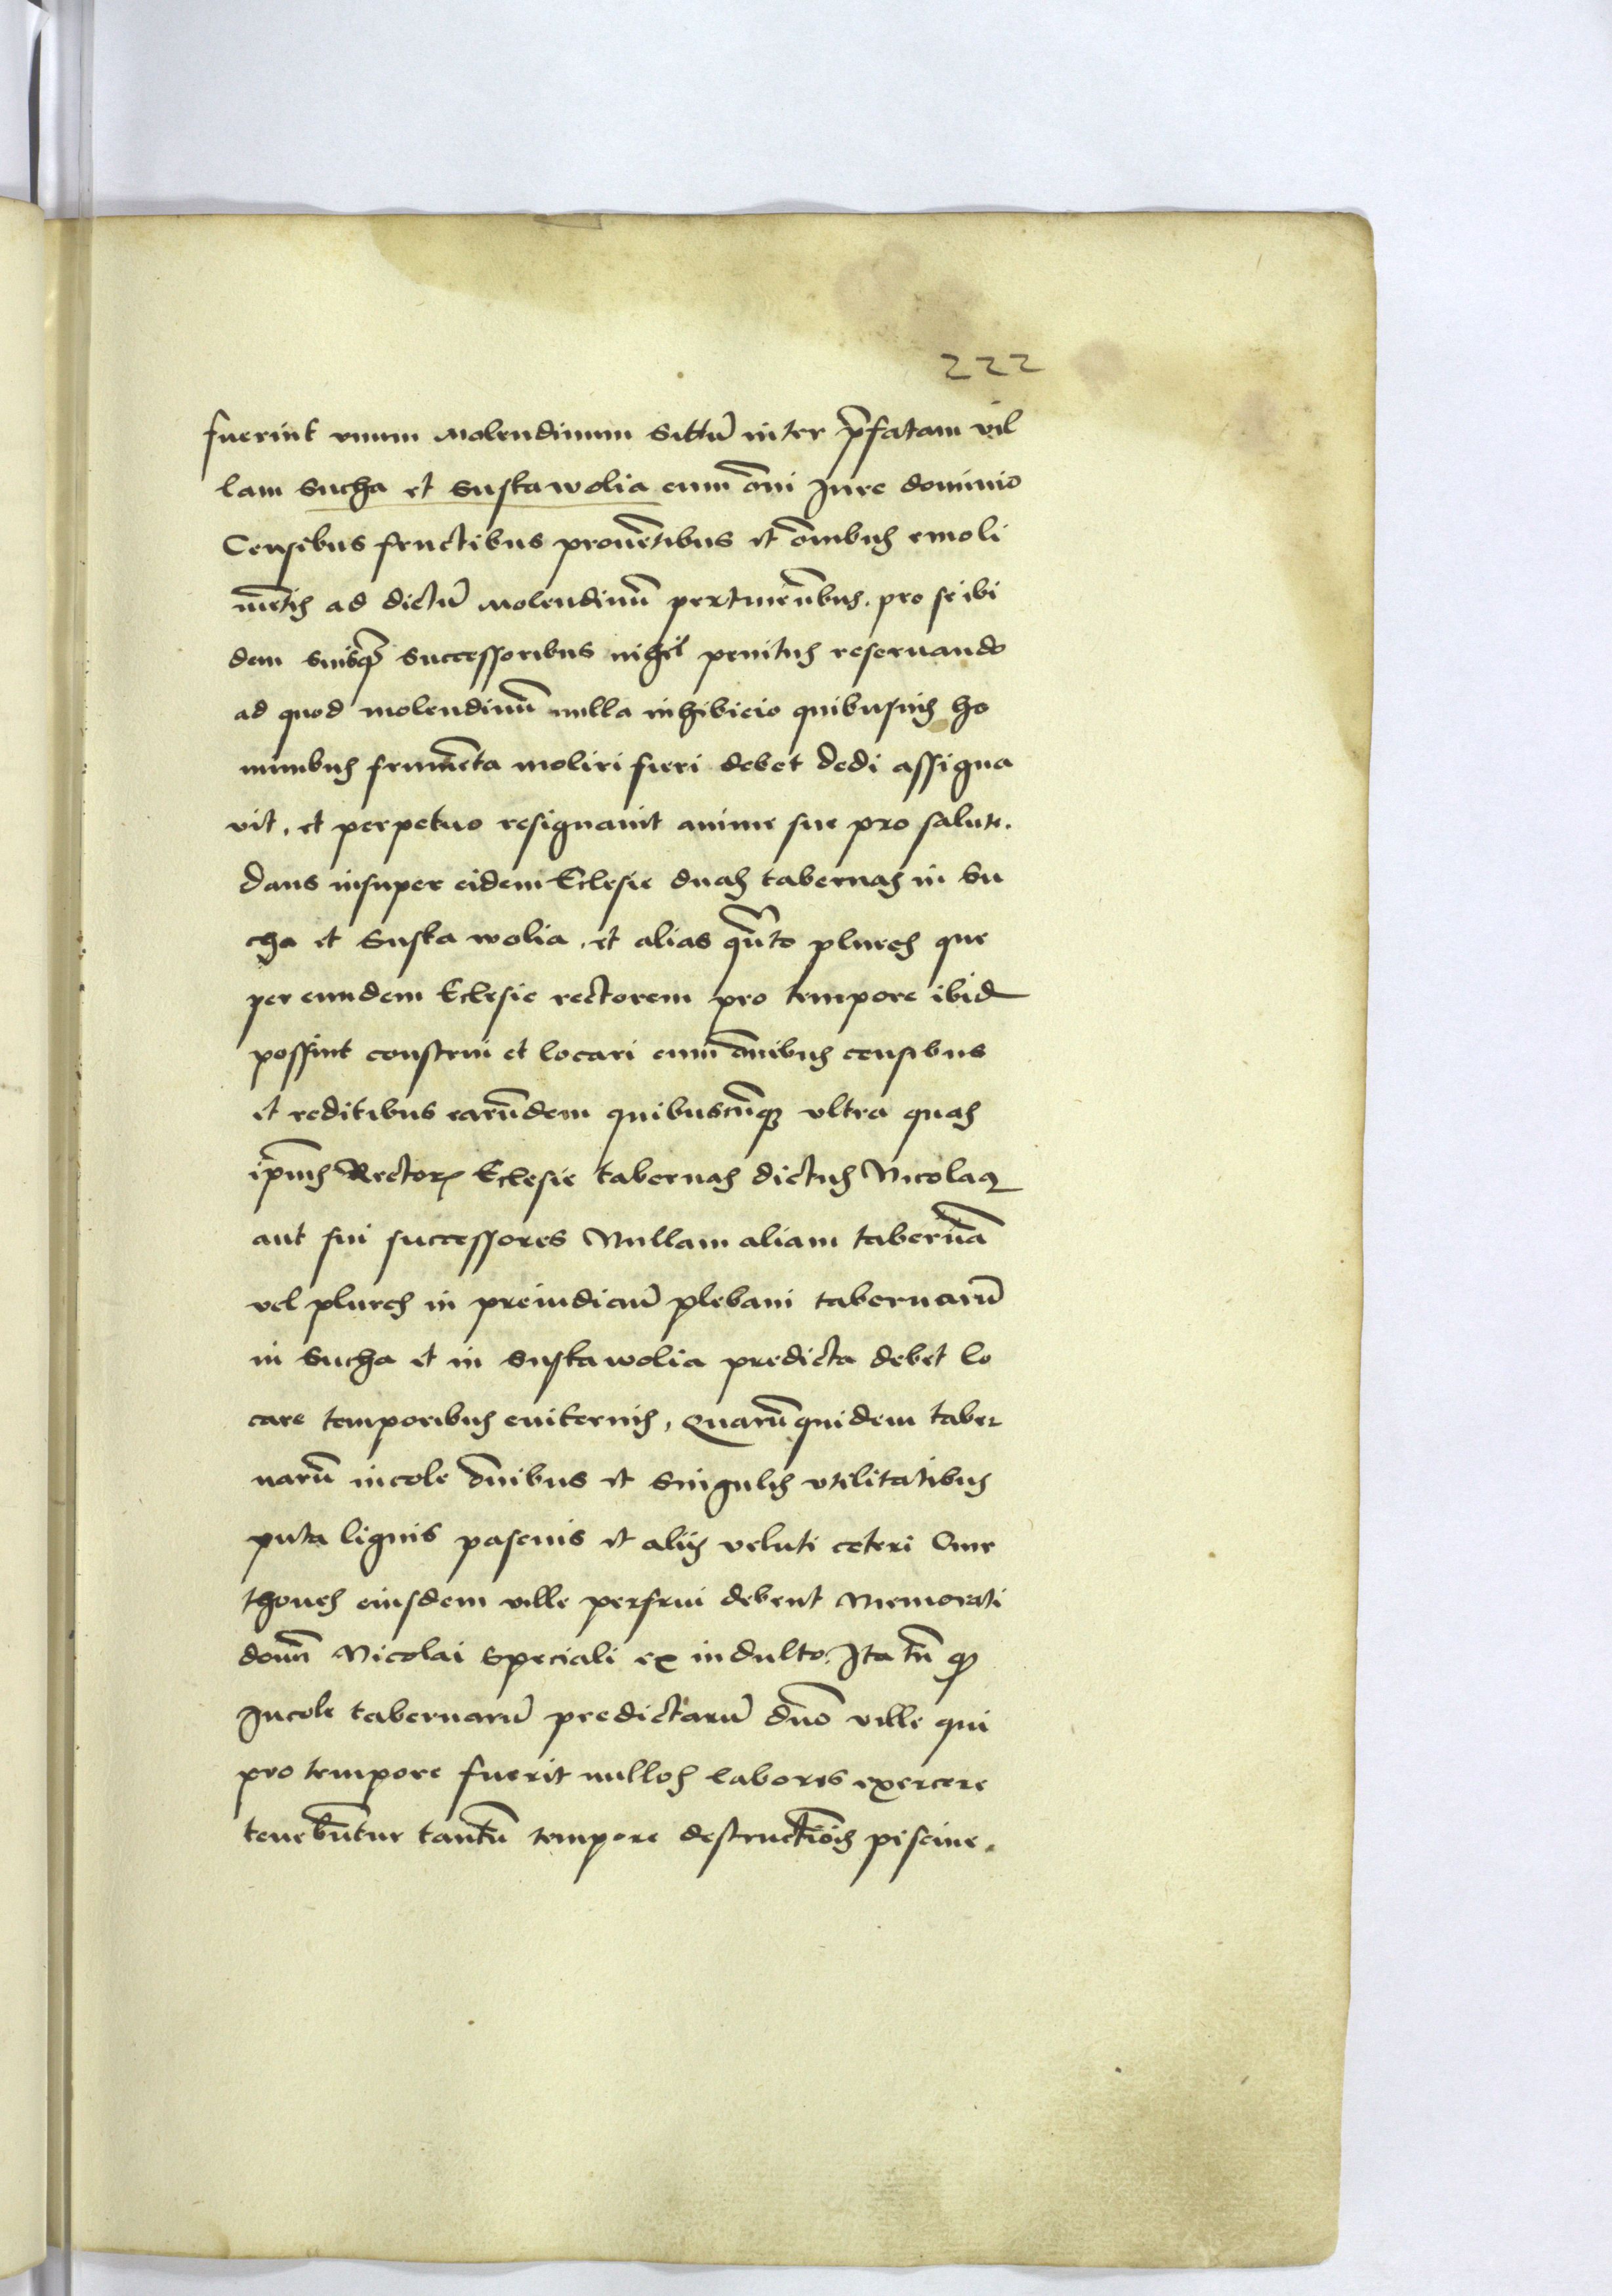 222
fuerint vnum Molendinum Sittū inter p̄fatam vil
lam Sucha et Suska wolia cum om̄i Jure dominio
Censibus fructibus prouētibus et om̄ibus emoli
mētis ad dictū Molendinū pertinētibus. pro se ibi
dem suisq₃ Successoribus nihil penitus reseruando
ad quod molendinū nulla inhibicio quibusuis ho
minibus frumēta moliri fieri debet dedi assigna
vit, et perpetuo resignauit anime sue pro salute.
Dans insuper eidem Eclesie duas tabernas in Su
cha et Suska wolia, et alias quāto plures que
per eundem Eclesie rectorem pro tempore ibid
possint construi et locari cum om̄ibus censibus
et reditibus earūdem quibuscūq₃ vltra quas
ip̄ius Rectoris Eclesie tabernas dictus Nicolaus
aut sui successores Nullam aliam tabernā
vel plures in preiudiciū plebani tabernarū
in Sucha et in Suska wolia predicta debet lo
care temporibus euiternis, Quarū quidem taber
narū incole om̄ibus et Singulis vtilitatibus
puta lignis pascuis et aliis veluti ceteri Cme
thones eiusdem ville perfrui debent Memorati
domi Nicolai Speciali ex indulto. Ita tn̄ q₃
Incole tabernarū predictarū dn̄o ville qui
pro tempore fuerit nullos labores exercere
tenebūtur tantū tempore destructiōis piscine.